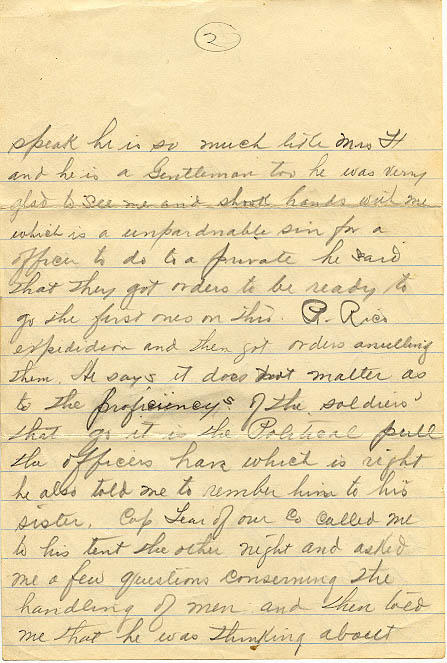 2
speak he is so much like Mrs H
and he is a Gentleman too he was very
glad to see me and shook hands with me
which is a unpardnable sin for a
officer to do to a private he said
that they got orders to be ready to
go the first ones on this P. Rico
expedidion and then got orders anulling
them. He says it does not matter as
to the proficiencys of the soldiers'
that go it is the Political pull
the officers have which is right
he also told me to rember him to his
sister. Cap of our Co called me
to his tent the other night and asked
me a few questions conserning the
handling of men and then told
me that he was thinking about